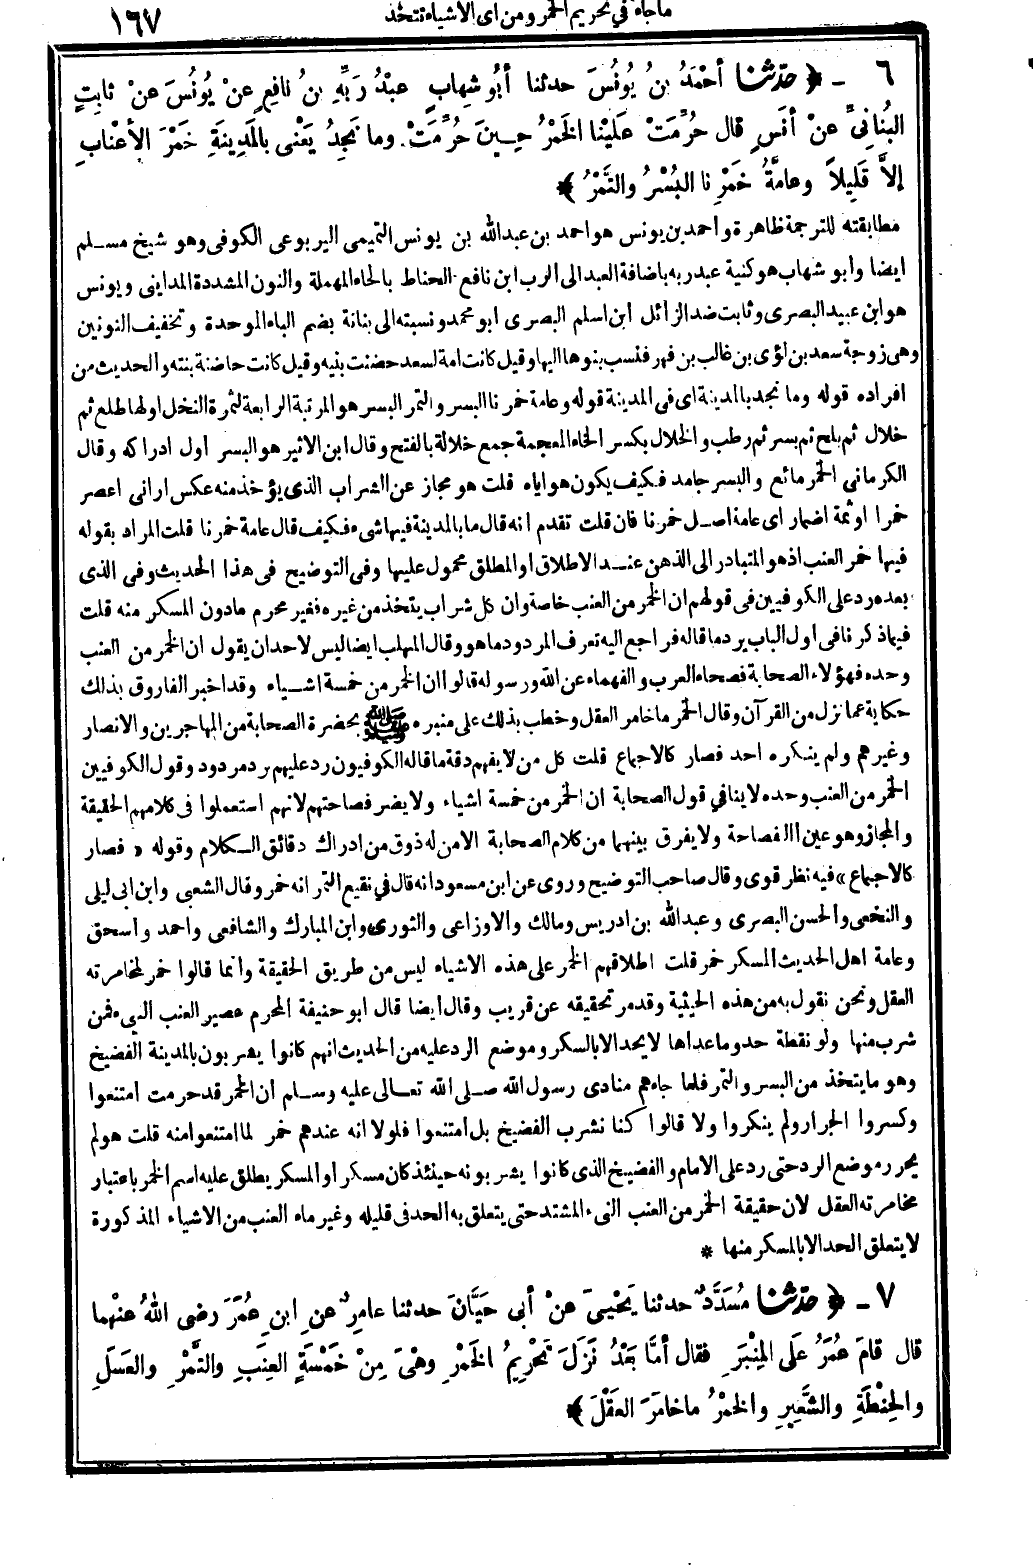 ماجاء في تحريم الخمر ومن اى الاشياء تتخذ
١٦٧
٦ - ﴿ حدّثنا أحْمَدُ بنُ يُونُسَ حدثنا أبُو شِهابٍ عبْدُ رَبِّهِ بنُ نافِعٍ عنْ يُونُسَ عنْ ثابِتٍ
البُنانِيِّ عنْ أنَسٍ قال حُرِّمَتْ عَلَيْنا الخَمْرُ حِينَ حُرِّمَتْ. وما نَجِدُ يَعْنى بالمَدِينَةِ خَمْرَ الأعْنابِ
إلاَّ قَلِيلاً وعامَّةُ خَمْرِنا البُسْرُ والتَّمْرُ ﴾
مطابقته للترجمة ظاهرة واحمد بن يونس هو احمد بن عبدالله بن يونس التميمى اليربوعى الكوفى وهو شيخ مسلم
ايضا وأبو شهاب هو كنية عبدربه باضافة العبد الى الرب ابن نافع الحناط بالحاء المهملة والنون المشددة المدايني ويونس
هو ابن عبيد البصرى وثابت ضد الزائل ابن اسلم البصرى ابو محمد ونسبته الى بنانة بضم الباء الموحدة وتخفيف النونين
وهى زوجة سعد بن لؤى بن غالب بن فهر فنسب بنوها اليها وقيل كانت امة لسعد حضنت بنيه وقيل كانت حاضنة بنته والحديث من
افراده قوله وما نجد بالمدينة اى فى المدينة قوله وعامة خمرنا البسر والتمر البسر هو المرتبة الرابعة لثمرة النخل اولها طلع ثم
خلال ثم بلح ثم بسر ثم رطب والخلال بكسر الخاء المعجمة جمع خلالة بالفتح وقال ابن الاثير هو البسر أول ادراكه وقال
الكرمانى الخمر مائع والبسر جامد فكيف يكون هو اياه قلت هو مجاز عن الشراب الذى يؤخذ منه عكس ارانى اعصر
خمرا اوثمة اضمار اى عامة اصل خمرنا فان قلت تقدم انه قال ما بالمدينة فيها شىء فكيف قال عامة خمرنا قلت المراد بقوله
فيها خمر العنب اذ هو المتبادر الى الذهن عند الاطلاق او المطلق محمول عليها وفى التوضيح فى هذا الحديث وفى الذى
بعده رد على الكوفيين فى قولهم ان الخمر من العنب خاصة وان كل شراب يتخذ من غيره فغير محرم مادون المسكر منه قلت
فيما ذكرنا فى اول الباب يرد ما قاله فراجع اليه تعرف المردود ما هو وقال المهلب ايضا ليس لاحد ان يقول ان الخمر من العنب
وحده فهؤلاء الصحابة فصحاء العرب والفهماء عن الله ورسوله قالوا ان الخمر من خمسة اشياء وقد اخبر الفاروق بذلك
حكاية عما نزل من القرآن وقال الخمر ما خامر العقل وخطب بذلك على منبره ﷺ بحضرة الصحابة من المهاجرين والانصار
وغيرهم ولم ينكره احد فصار كالاجماع قلت كل من لا يفهم دقة ما قاله الكوفيون رد عليهم برد مردود وقول الكوفيين
الخمر من العنب وحده لا ينافي قول الصحابة ان الخمر من خمسة اشياء ولا يضر فصاحتهم لانهم استعملوا فى كلامهم الحقيقة
والمجاز وهو عين الفصاحة ولا يفرق بينهما من كلام الصحابة الا من له ذوق من ادراك دقائق الكلام وقوله « فصار
كالاجماع » فيه نظر قوى وقال صاحب التوضيح وروى عن ابن مسعود انه قال في نقيع التمر انه خمر وقال الشعبى وابن ابى ليلى
والنخعى والحسن البصرى وعبدالله بن ادريس ومالك والاوزاعى والثورى وابن المبارك والشافعى واحمد واسحق
وعامة اهل الحديث المسكر خمر قلت اطلاقهم الخمر على هذه الاشياء ليس من طريق الحقيقة وانما قالوا خمر لمخامرته
العقل ونحن نقول به من هذه الحيثية وقد مر تحقيقه عن قريب وقال ايضا قال ابو حنيفة المحرم عصير العنب النىء فمن
شرب منها ولو نقطة حد وما عداها لا يحد الا بالسكر وموضع الرد عليه من الحديث انهم كانوا يشربون بالمدينة الفضيخ
وهو ما يتخذ من البسر والتمر فلما جاءهم منادى رسول الله صلى الله تعالى عليه وسلم ان الخمر قد حرمت امتنعوا
وكسروا الجرار ولم ينكروا ولا قالوا كنا نشرب الفضيخ بل امتنعوا فلولا انه عندهم خمر لما امتنعوا منه قلت هو لم
يحرر موضع الرد حتى رد على الامام والفضيخ الذى كانوا يشربونه حينئذ كان مسكرا والمسكر يطلق عليه اسم الخمر باعتبار
مخامرته العقل لان حقيقة الخمر من العنب النىء المشتد حتى يتعلق به الحد فى قليله وغير ماء العنب من الاشياء المذكورة
لا يتعلق الحد الا بالمسكر منها *
٧ - ﴿ حدّثنا مُسَدَّدٌ حدثنا يَحْيىَ عنْ أبى حَيَّانَ حدثنا عامِرٌ عنِ ابنِ عُمَرَ رضى اللهُ عنْهما
قال قامَ عُمَرُ علَى المِنْبَرِ فقال أمَّا بَعْدُ نَزَلَ تَحْرِيمُ الخَمْرِ وهْىَ مِنْ خَمْسَةٍ العِنَبِ والتَّمْرِ والعَسَلِ
والحِنْطَةِ والشَّعِيرِ والخَمْرُ ما خامَرَ العَقْلَ ﴾